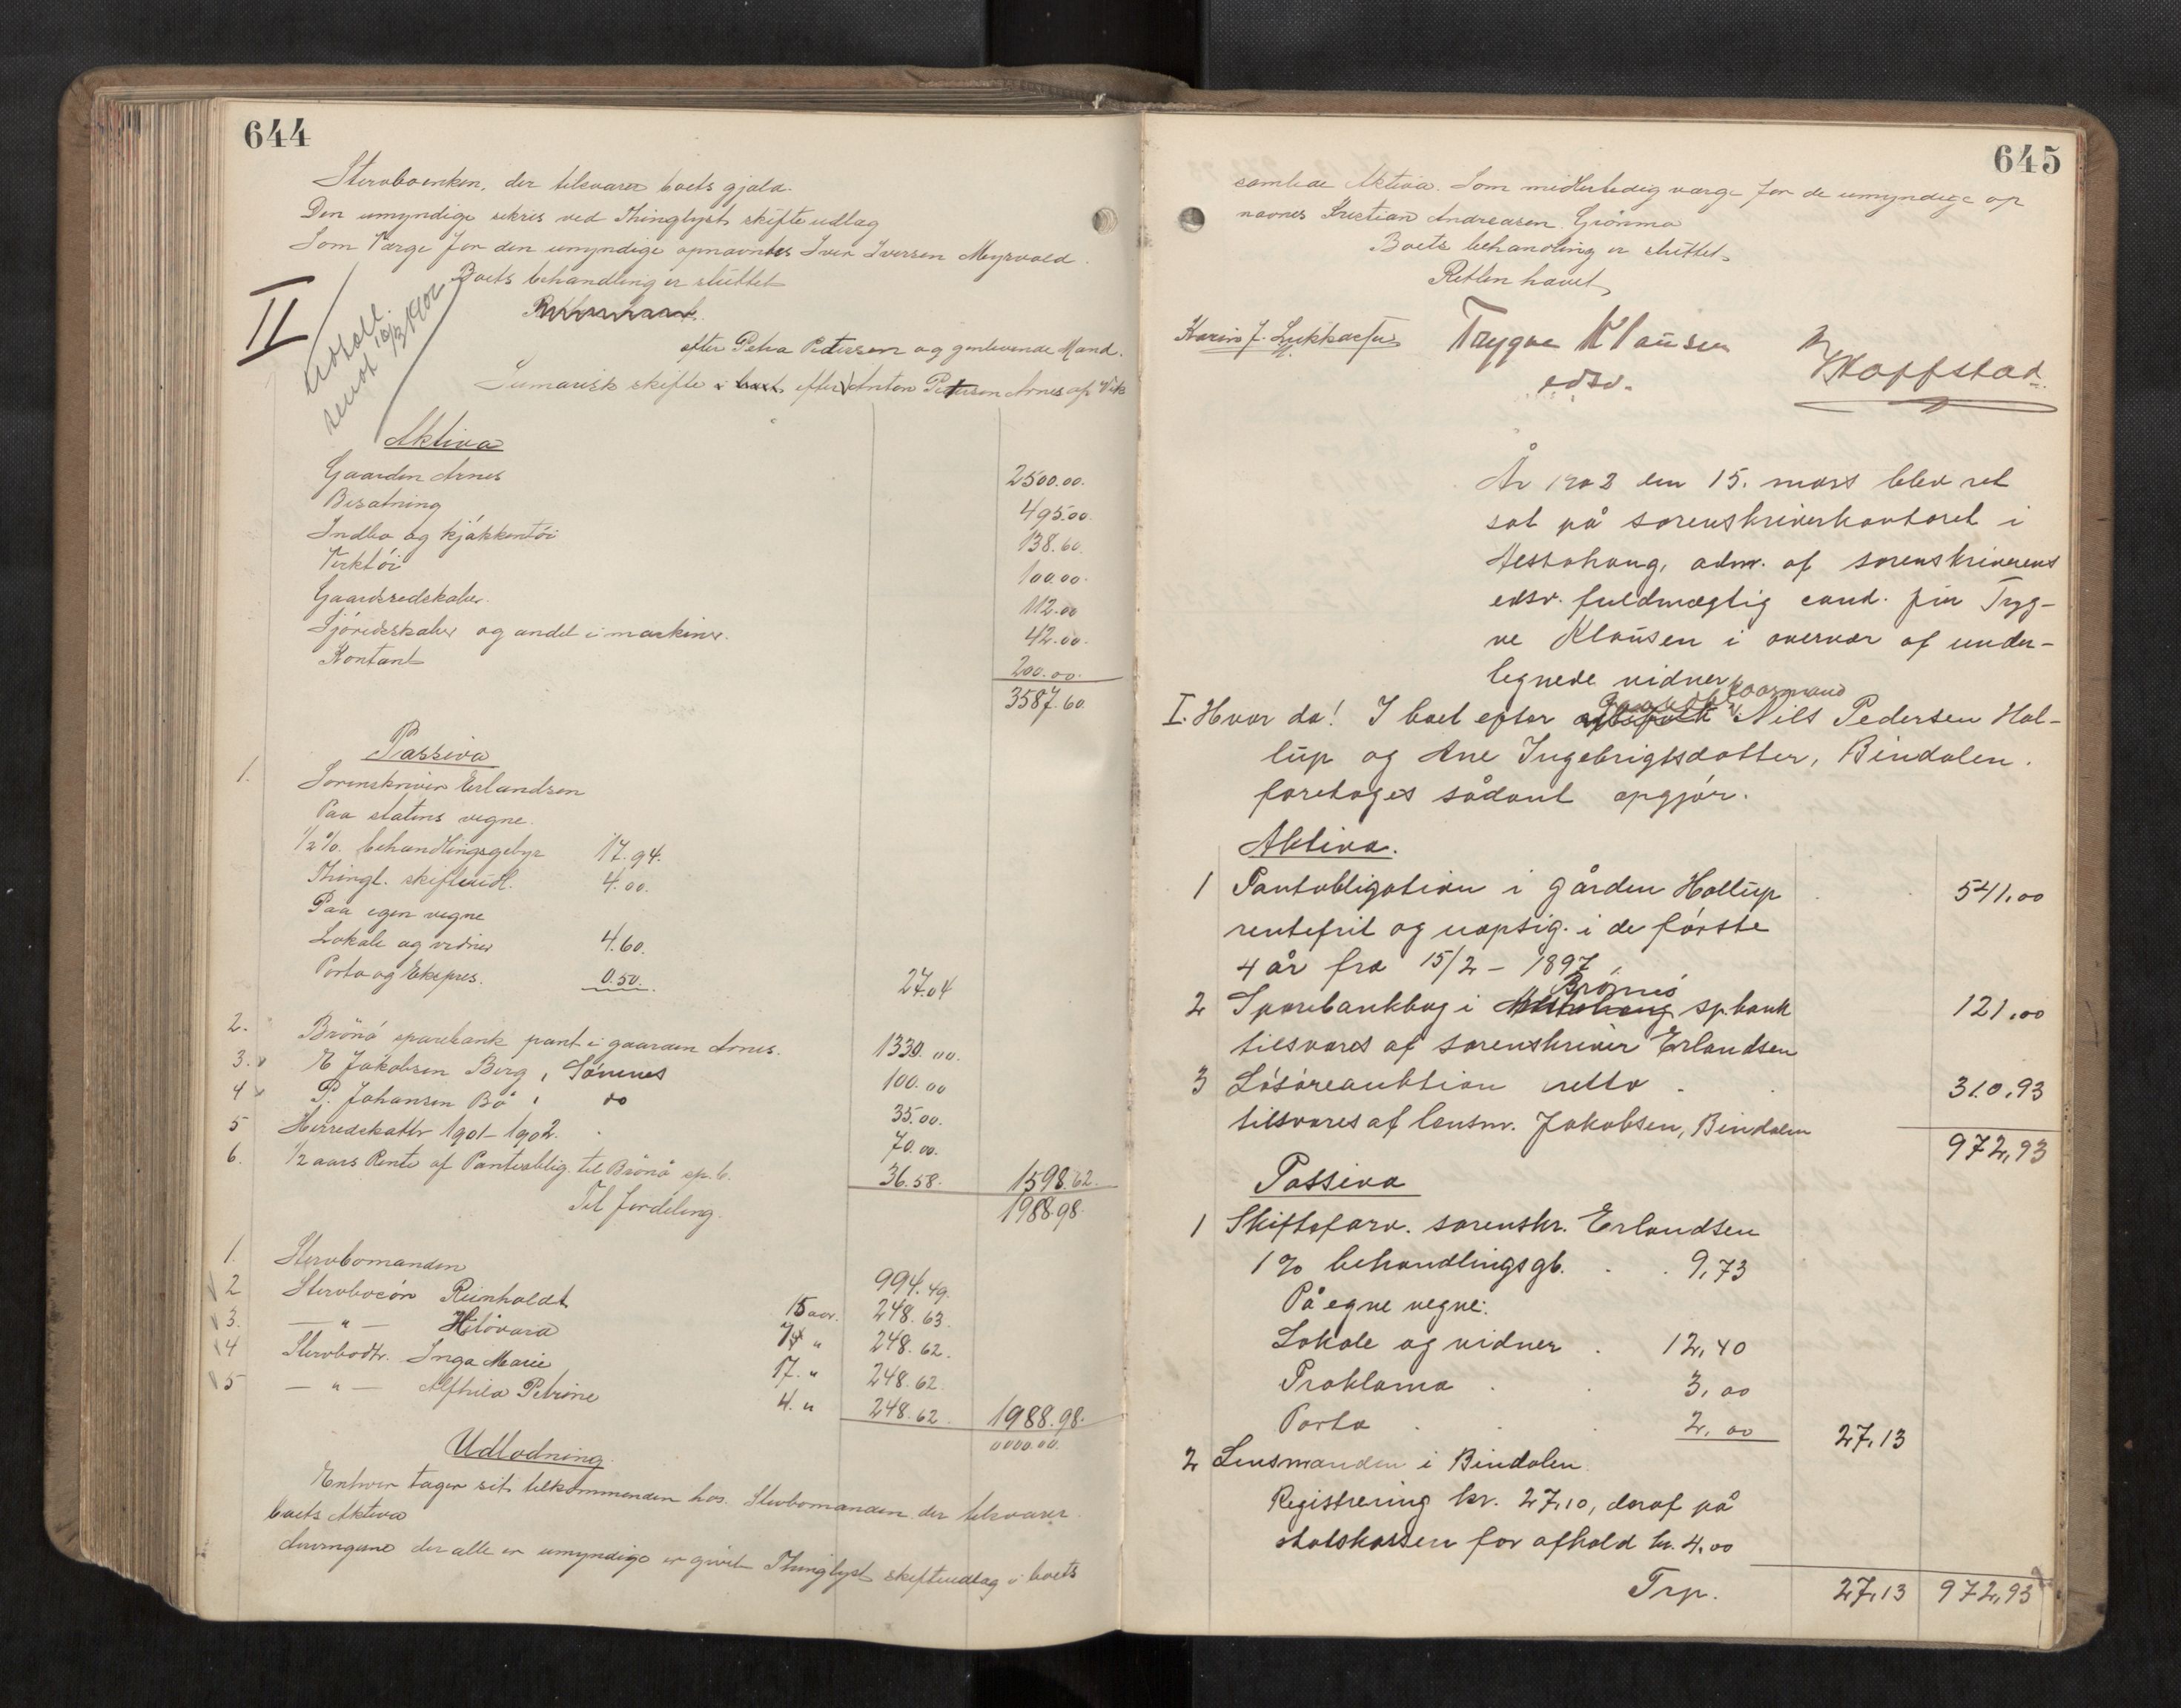 644
Stervboenken, der tilsvarer boets gjæld.
Den umyndige sikres ved Thinglyst skifteudlæg
Som Værge for den umyndige opnævntes Iver Iversen Myrvold.
Boets behandling er sluttet
II
efter Petra Pedersen og genlevende Mand.
Sumarisk skifte i boet efter Anton Petersen Arnes af Vik
Aktiva
Gaarden Arnes 2500.00.
Besætning 495.00.
Indbo og kjøkkentøi 138.60.
Verktøi 100.00.
Gaardsredskaber. 112.00
Sjøredskaber og andet i maskiner. 42.00.
Kontant 200.00.
3587.60.
Passiva
1. Sorenskriver Erlandsen
Paa statens vegne.
1/2 % behandlingsgebyr 17.94.
Thingl. skifteudl. 4.00.
Paa egen vegne
Lokale og vidner 4.60.
Porto og Ekspres. 0.50. 27.04
2. Brönö sparebank pant i gaarden Arnes. 1330.00.
3. E Jakobsen Berg, Sømnes 100.00
4 P. Johansen Bø, do 35.00.
5 Herredskatte 1901-1902. 70.00.
6. 1/2 aars Rente af Panteoblig. til Brönö sp.b. 36.58. 1598.62.
Til fordeling. 1988.98.
1. Stervbomanden 994.49.
2 Stervbosön Reinholdt 15 aar. 248.63.
3. — " — Hilövard 14 " 248.62.
4 Stervbodtr. Inga Marie 17. " 248.62.
5 — " — Alfhild Petrine 4. " 248.62. 1988.98.
0000.00.
Udlodning.
Enhver tager sit tilkommende hos. Stervbomanden der tilsvarer
boets Aktiva
Arvingene der alle er umyndige er givet Thinglyst skifteudlæg i boets
645
samlede Aktiva. Som midlertidig værge for de umyndige op
nævnes Kristian Andreasen Grönmo
Boets behandling er sluttet.
Retten hævet
Karins J. Lukkassen Trygve Klausen Kopfstad.
edsv.
År 1902 den 15. mars blev ret
sat på sorenskriverkontoret i
Hestehaug, adm. af sorenskriverens
edsv. fuldmægtig cand. jur Tryg-
ve Klausen i overvær af under-
tegnede vidner
I. Hvor da! I boet efter Gaardbr. Nils Pedersen Hol-
lup og Ane Ingebrigtsdatter, Bindalen.
foretages sådant opgjør.
Aktiva.
1 Pantobligation i gården Hollup 541,00
rentefrit og uopsig. i de første
4 år fra 15/2 - 1897.
2 Sparebankbog i Brönnö sp.bank 121,00
tilsvares af sorenskriver Erlandsen
3 Løsøreauktion netto 310,93
tilsvares af lensm. Jakobsen, Bindalen
972,93
Passiva
1 Skifteforv. sorenskr. Erlandsen
1 % behandlingsgb. 9,73
På egne vegne:
Lokale og vidner 12,40
Proklama 3,00
Porto 2,00 27,13
2 Lensmanden i Bindalen.
Registrering kr. 27,10, deraf på
statskassen for afhold kr. 4,00
Trp. 27,13 972,93